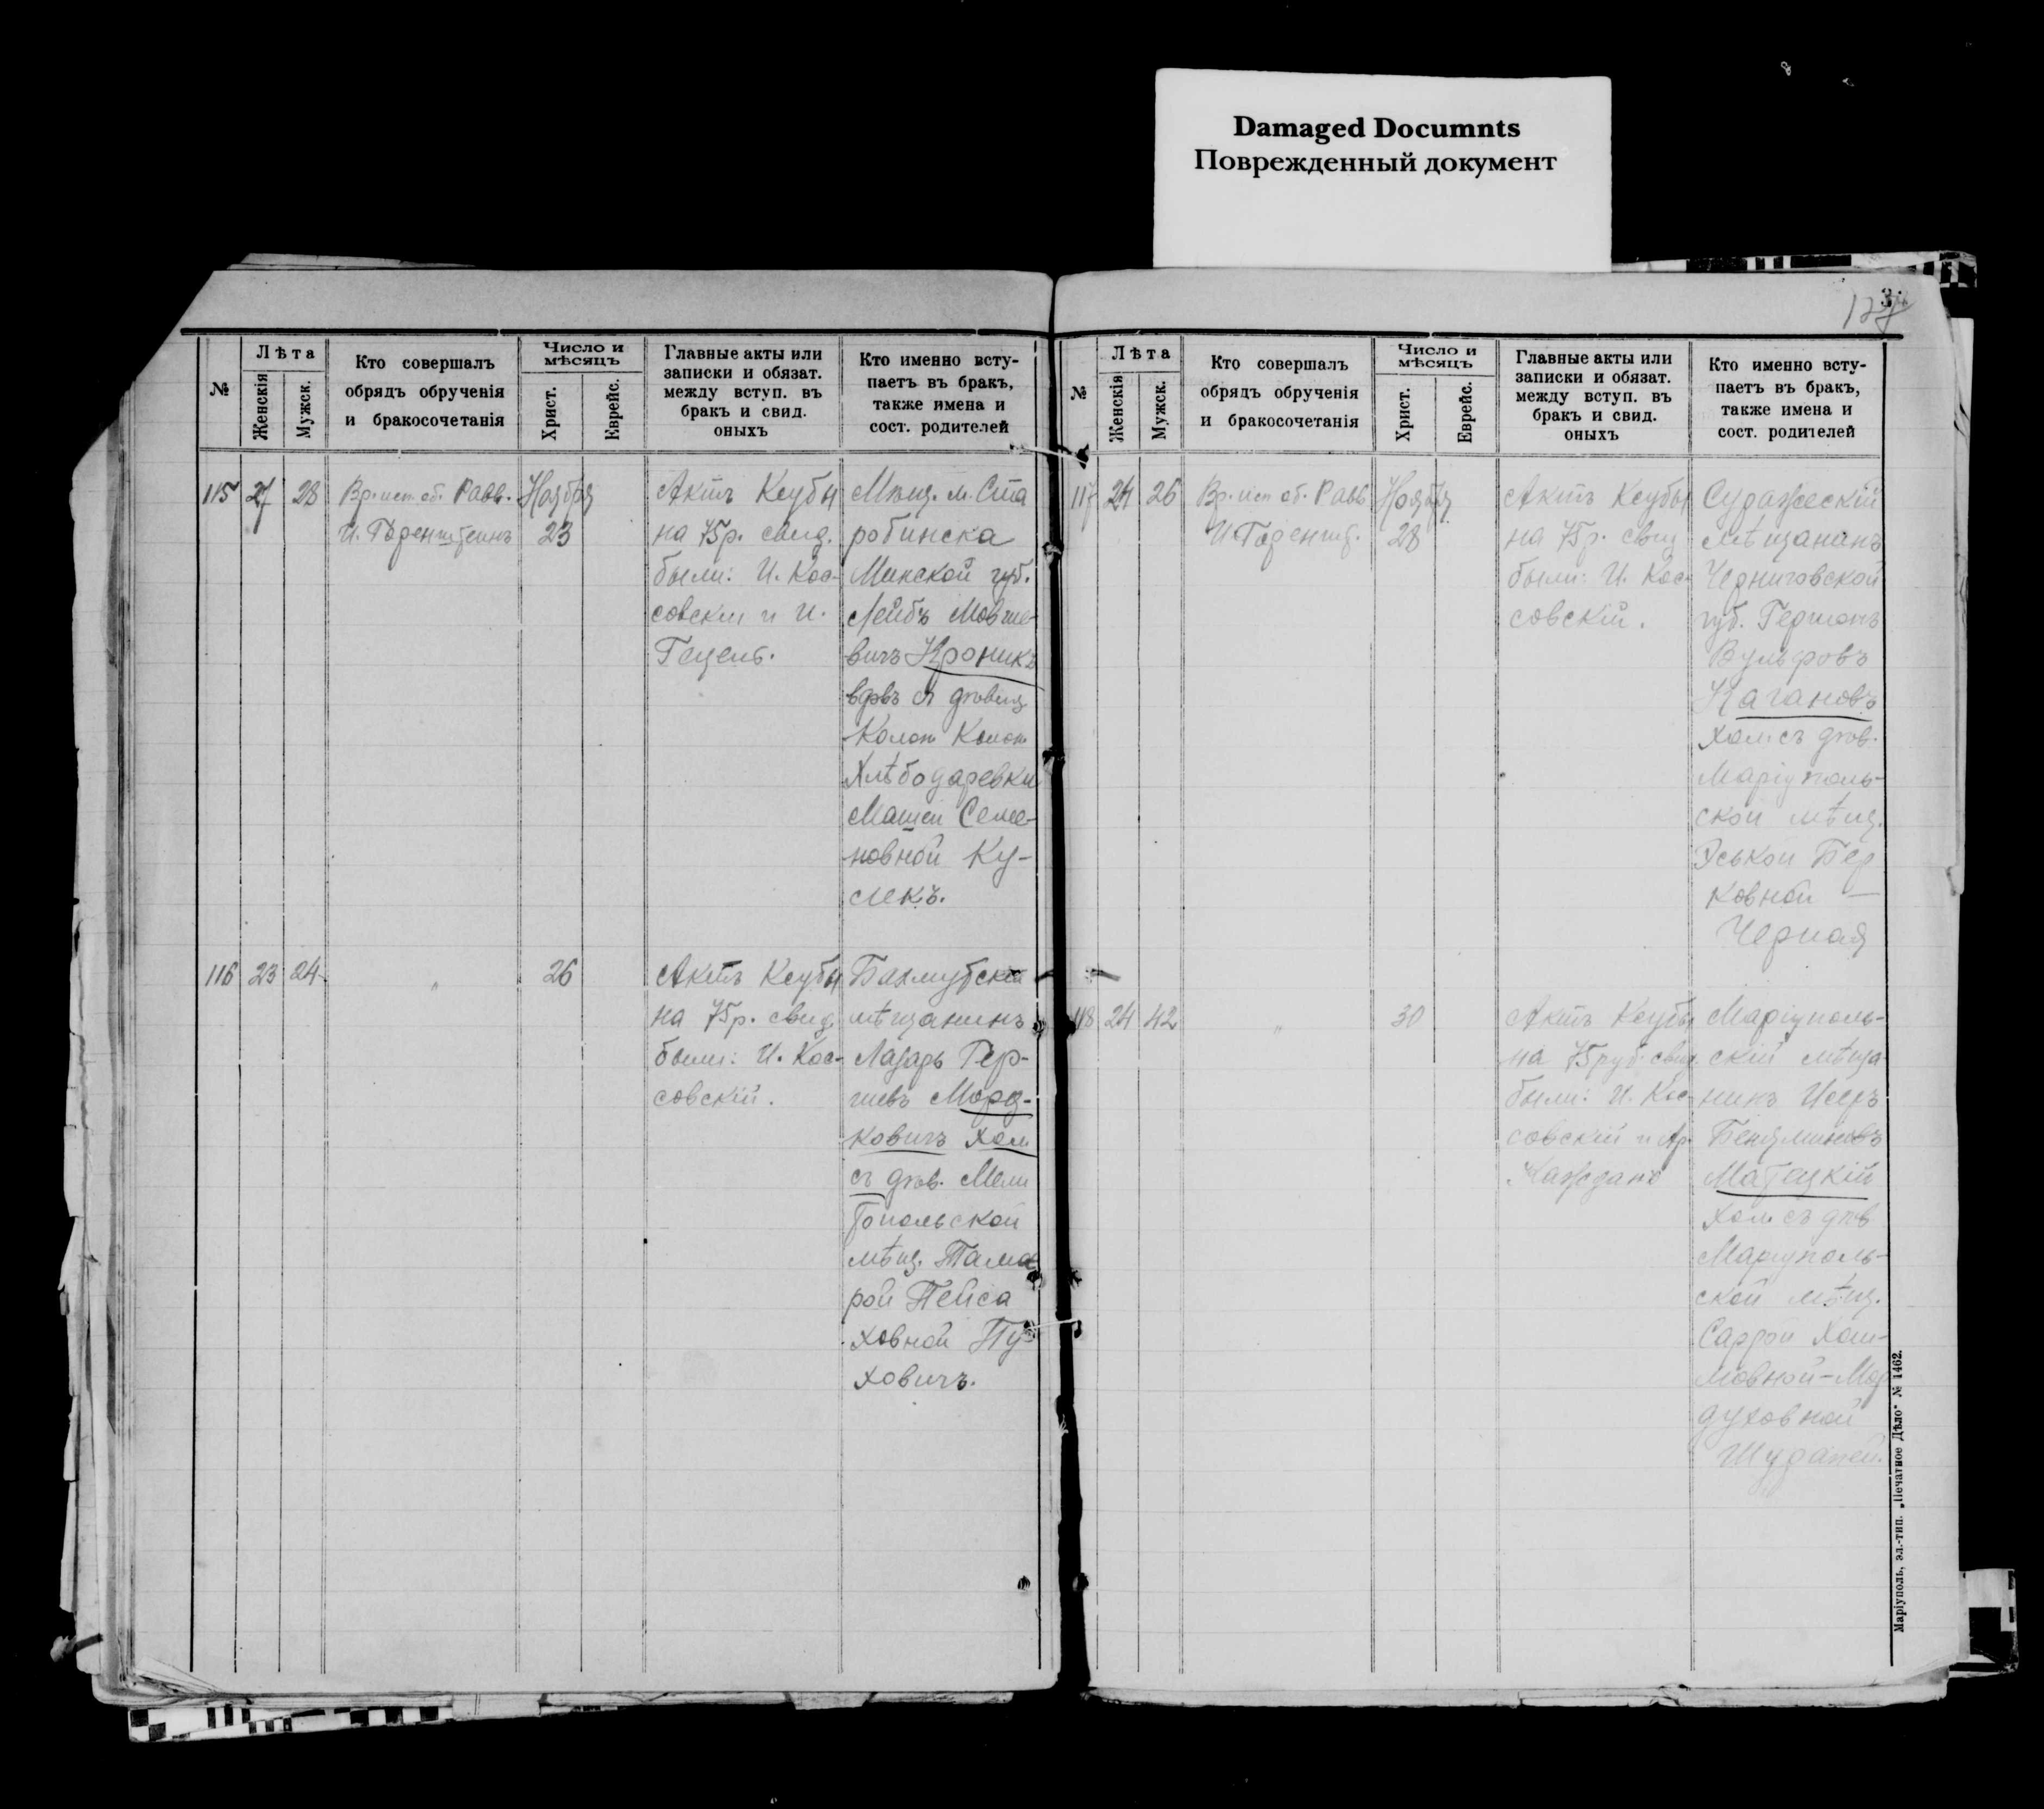 Damaged Documnts
Поврежденный документ
№
Лѣта
Женскія
Мужск.
Кто совершалъ
обрядъ обрученія
и бракосочетанія
Число и
мѣсяцъ
Христ.
Еврейс.
Главные акты или
записки и обязат.
между вступ. въ
бракъ и свид.
оныхъ
Кто именно всту-
паетъ въ бракъ,
также имена и
сост. родителей
115 27 28
Вр. исп. об. Равв.
И. Горенштейнъ
Ноября
23
Актъ Ксубы
на 75р. свид.
были: И. Кос-
совскій и И.
Гецель.
Мѣщ. м. Ста
робинска
Минской губ.
Лейбъ Мовше-
вичъ Кроникъ
вдвъ с дѣвиц
Колон
Хлѣбодаревки
Машей Семе-
новной Ку-
лекъ.
116 23 24
"
26
Актъ Ксубы
на 75р. свид.
были: И. Кос-
совскій.
Бахмутскій
мѣщанинъ
Лазарь Гер-
шевъ Морд-
ковичъ хол.
съ дѣв. Мели
топольской
мѣщ. Тама
рой Пейса
ховной Пу
ховичъ.
3.
127
№
Лѣта
Женскія
Мужск.
Кто совершалъ
обрядъ обрученія
и бракосочетанія
Число и
мѣсяцъ
Христ.
Еврейс.
Главные акты или
записки и обязат.
между вступ. въ
бракъ и свид.
оныхъ
Кто именно всту-
паетъ въ бракъ,
также имена и
сост. родителей
117 24 26
Вр. исп об. Равв.
И. Гореншт.
Ноября
28
Актъ Ксубы
на 75р. свид
были: И. Кос-
совскій.
Суражескій
мѣщанинъ
Черниговской
губ. Гершонъ
Вульфовъ
Кагановъ
хол. съ дѣв.
Маріуполь-
ской мѣщ.
Эськой Бер
ковной —
Черная
118 24 42
"
30
Актъ Ксубы
на 75 руб. свид.
были: И. Кос-
совскій и Ар.
Каждано
Маріуполь-
скій мѣща
нинъ Исеръ
Беняминовъ
Матецкій
хол. съ дѣв
Маріуполь-
ской мѣщ.
Саррой Хаи-
мовной-Мор
духовной
Маріуполь, эл.-тип. „Печатное Дѣло“ № 1462.